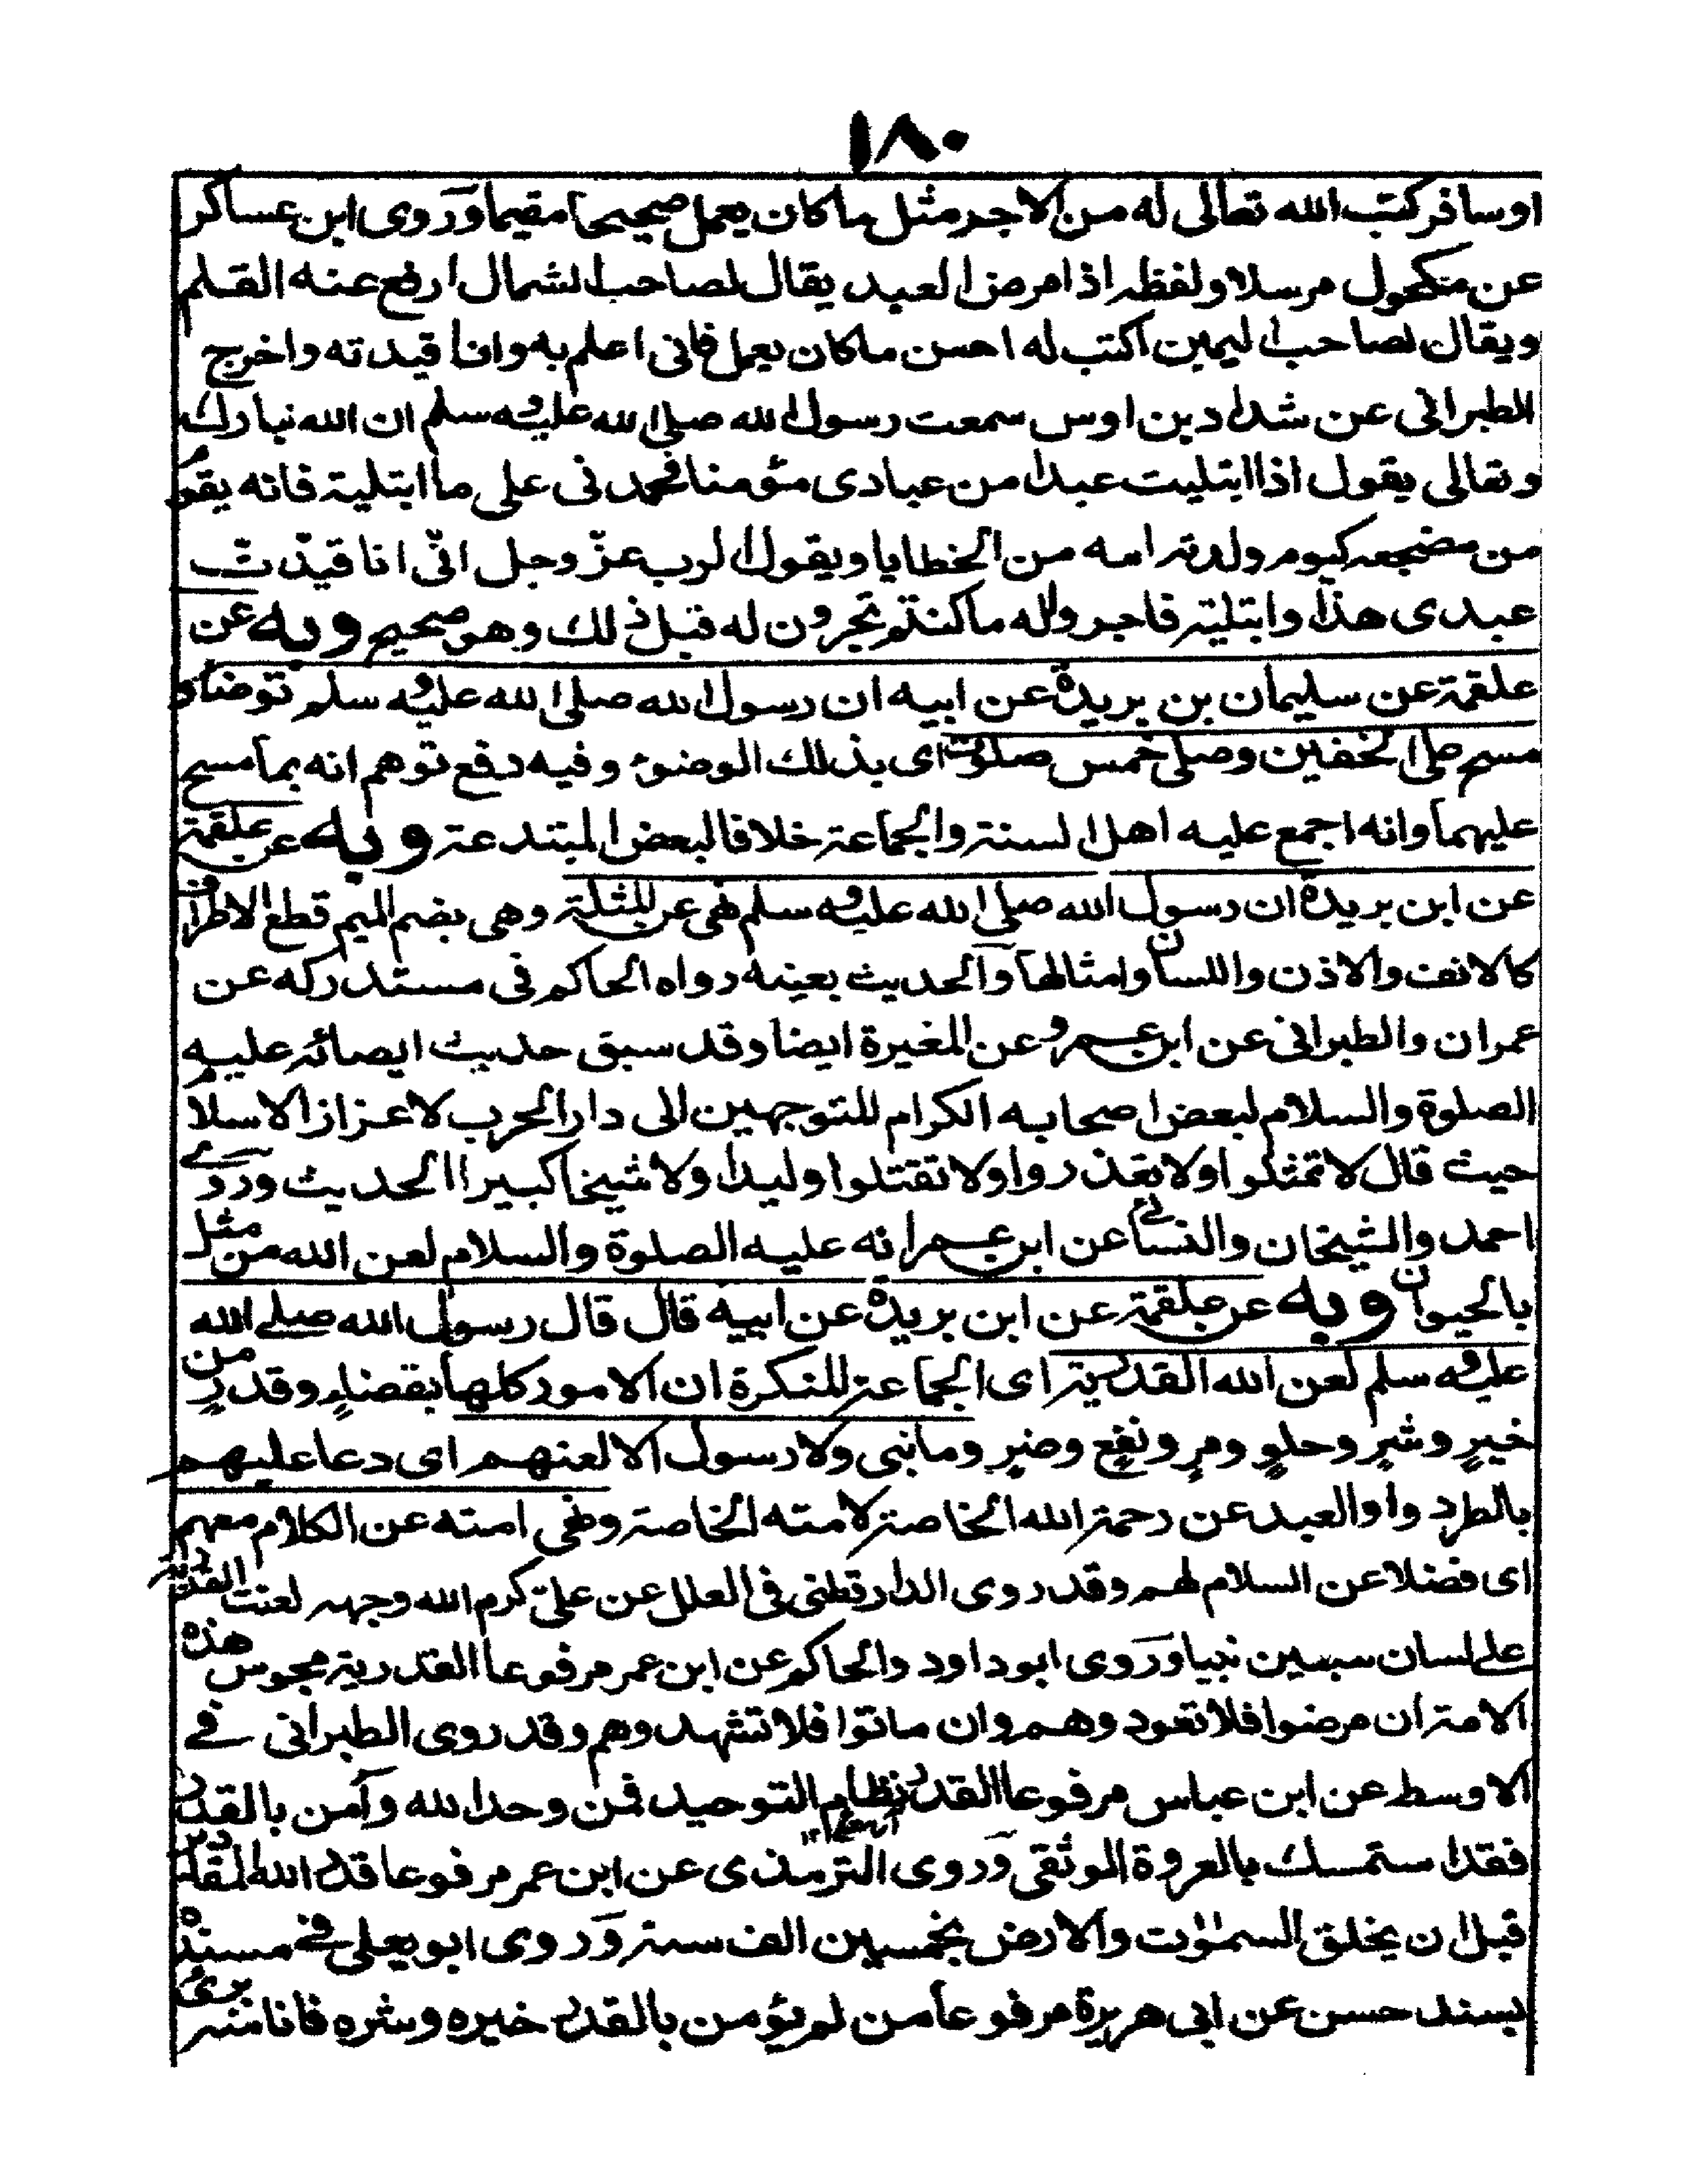 ١٨٠
او سافر كتب الله تعالى له من الاجر مثل ما كان يعمل صحيحا مقيما وروى ابن عساكر
عن مكحول مرسلا ولفظه اذا مرض العبد يقال لصاحب الشمال ارفع عنه القلم
ويقال لصاحب اليمين اكتب له احسن ما كان يعمل فانى اعلم به وانا قيدته واخرج
الطبرانى عن شداد بن اوس سمعت رسول الله صلى الله عليه وسلم ان الله تبارك
وتعالى يقول اذا ابتليت عبدا من عبادى مؤمنا فحمدنى على ما ابتليته فانه يقوم
من مضجعه كيوم ولدته امه من الخطايا ويقول الرب عزّ وجل انّى انا قيّدتّ
عبدى هذا وابتليته فاجروا له ما كنتم تجرون له قبل ذلك وهو صحيح وبه عن
علقمة عن سليمان بن بريدة عن ابيه ان رسول الله صلى الله عليه وسلم توضأ و
مسح على الخفين وصلى خمس صلوت اى بذلك الوضوء وفيه دفع توهم انه بما مسح
عليهما وانه اجمع عليه اهل السنة والجماعة خلافا لبعض المبتدعة وبه عن علقمة
عن ابن بريدة ان رسول الله صلى الله عليه وسلم نهى عن المثلة وهى بضم الميم قطع الاطراف
كالانف والاذن واللسان وامثالها والحديث بعينه رواه الحاكم فى مستدركه عن
عمران والطبرانى عن ابن عمرو عن المغيرة ايضا وقد سبق حديث ايصائه عليه
الصلوة والسلام لبعض اصحابه الكرام للتوجهين الى دار الحرب لاعزاز الاسلام
حيث قال لا تمثلوا ولا تغدروا ولا تقتلوا وليدا ولا شيخا كبيرا الحديث وروى
احمد والشيخان والنسائى عن ابن عمر انه عليه الصلوة والسلام لعن الله من مثل
بالحيوان وبه عن علقمة عن ابن بريدة عن ابيه قال قال رسول الله صلى الله
عليه وسلم لعن الله القدرية اى الجماعة المنكرة ان الامور كلها بقضاءٍ وقدرٍ من
خيرٍ وشرٍ وحلوٍ ومرٍ ونفعٍ وضرٍ وما نبى ولا رسول الا لعنهم اى دعا عليهم
بالطرد والبعد عن رحمة الله الخاصة لامته الخاصة ونهى امته عن الكلام معهم
اى فضلا عن السلام لهم وقد روى الدارقطنى فى العلل عن على كرم الله وجهه لعنت القدرية
على لسان سبعين نبيا وروى ابوداود والحاكم عن ابن عمر مرفوعا القدرية مجوس هذه
الامة ان مرضوا فلا تعودوهم وان ماتوا فلا تشهدوهم وقد روى الطبرانى فى
الاوسط عن ابن عباس مرفوعا القدر نظام التوحيد فمن وحد الله وآمن بالقدر
فقد استمسك بالعروة الوثقى وروى الترمذى عن ابن عمر مرفوعا قدر الله المقادير
قبل ان يخلق السموت والارض بخمسين الف سنة وروى ابو يعلى فى مسنده
بسند حسن عن ابى هريرة مرفوعا من لم يؤمن بالقدر خيره وشره فانا منه برئ